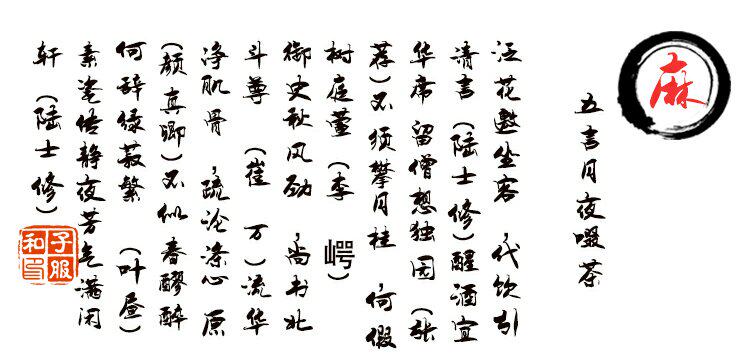 麻
五言月夜啜茶
泛花邀坐客 ,代饮引
清言 (陆士修)醒酒宜
华席 留僧想独园 (张
荐)不须攀月桂 ,何假
树庭萱 (李 崿)
御史秋风劲 ,尚书北
斗尊 (崔 万)流华
净肌骨 ,疏沦涤心原
(颜真卿)不似春醪醉
何辞绿菽繁 (叶昼)
素瓷传静夜芳气满闲
轩 (陆士修)
子服
和印